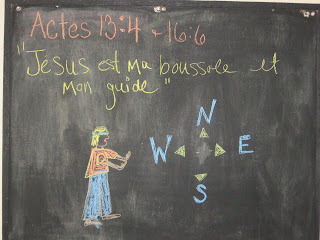 Actes 13:4 - 16:6
"Jesus est ma boussole et
mon guide"
N
W E
S